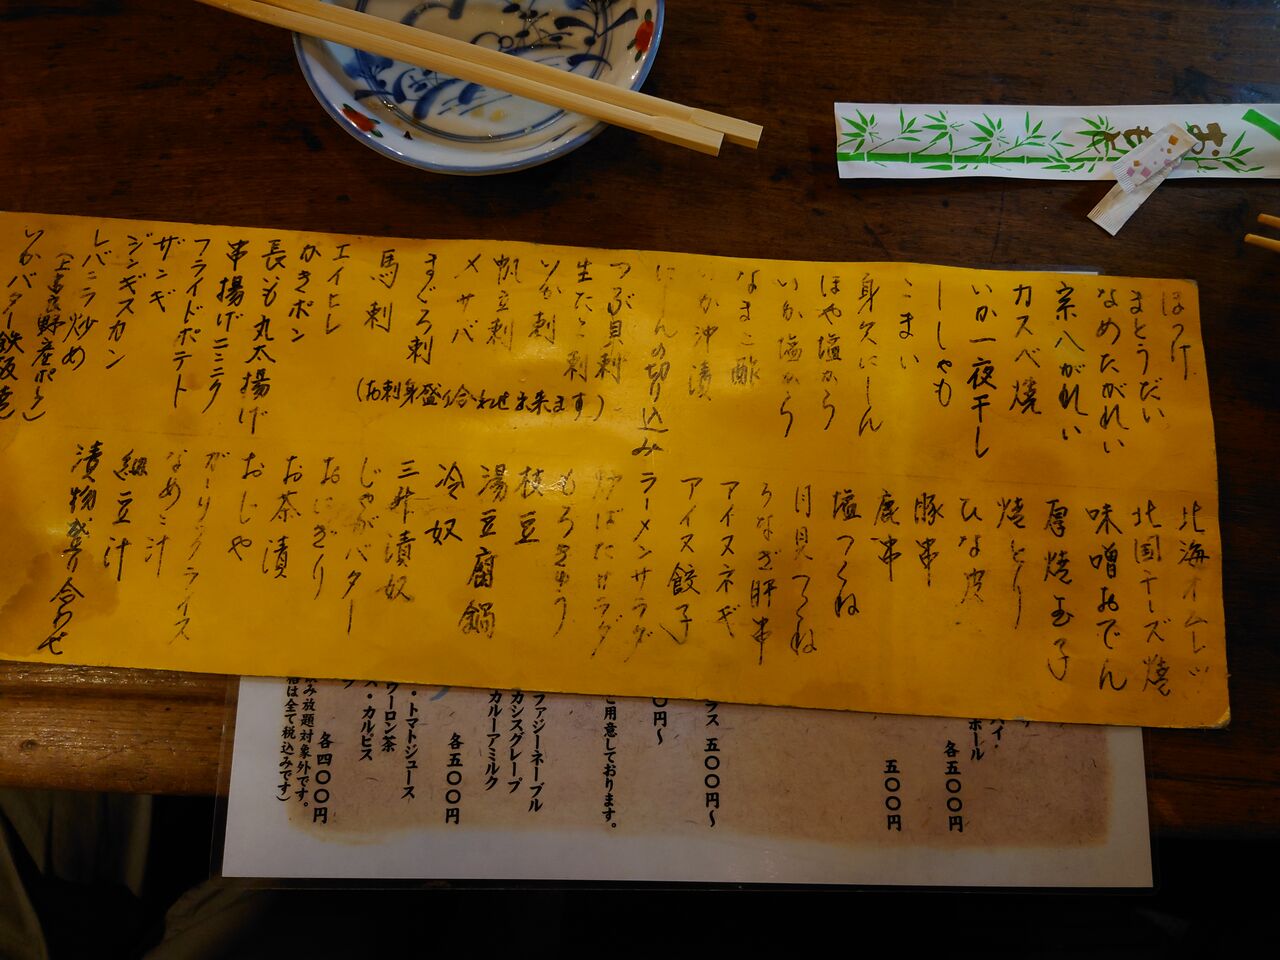 おてもと
ほっけ
まとうだい
なめたがれい
宗八がれい
カスベ焼
いか一夜干し
ししゃも
こまい
身欠にしん
ほや塩から
いか塩から
なまこ酢
いか沖漬
にしんの切り込み
つぶ貝刺
生たこ刺
いか刺
帆立刺
〆サバ
まぐろ刺
馬刺
(お刺身盛り合わせ出来ます)
エイヒレ
かきポン
長いも丸太揚げ
串揚げニンニク
フライドポテト
ザンギ
ジンギスカン
レバニラ炒め
(上富良野産ポーク)
いかバター鉄板焼
北海オムレツ
北国チーズ焼
味噌おでん
厚焼玉子
焼とり
ひな皮
豚串
鹿串
塩つくね
月見つくね
うなぎ肝串
アイヌネギ
アイヌ餃子
ラーメンサラダ
炉ばたサラダ
もろきゅう
枝豆
湯豆腐鍋
冷奴
三升漬奴
じゃがバター
おにぎり
お茶漬
おじや
ガーリックライス
なめこ汁
納豆汁
漬物盛り合わせ
ハイ・
ボール
各五〇〇円
五〇〇円
ラス 五〇〇円〜
〇円〜
ご用意しております。
ファジーネーブル
カシスグレープ
カルーアミルク
各五〇〇円
・トマトジュース
ウーロン茶
ス・カルピス
各四〇〇円
飲み放題対象外です。
格は全て税込みです)